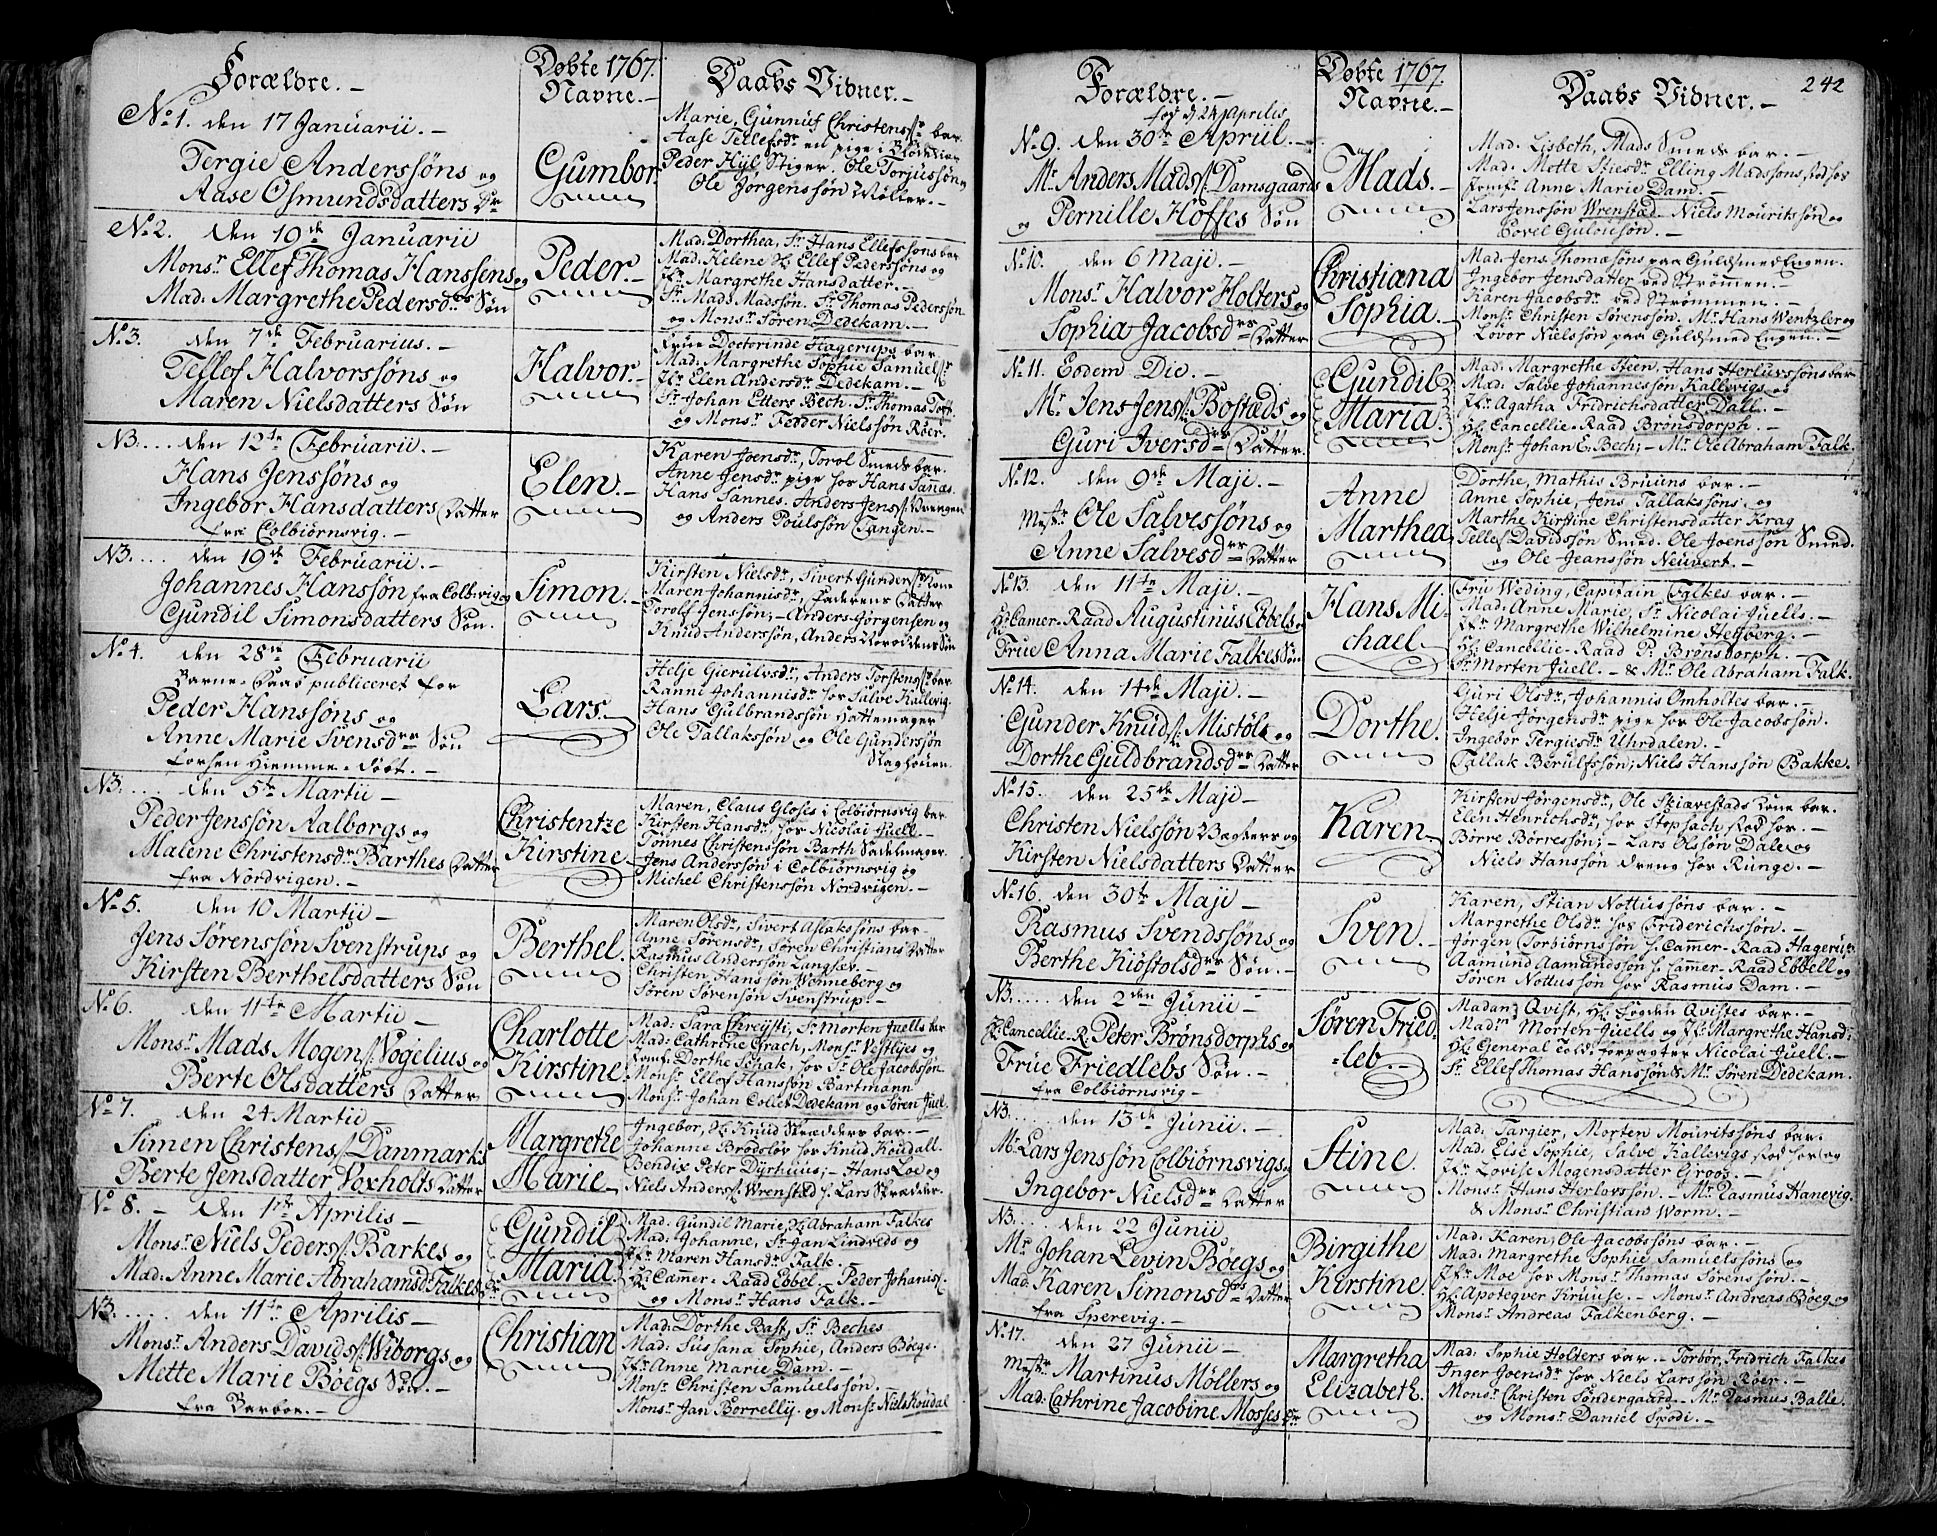 Forældre.-
Døbte 1767.
Navne.-
Daabs Vidner.-
No 1. den 17 Januarii.-
Tergie Anderssøns og
Aase Osmundsdatters Dr
Gumbor.
Marie, Gunnuf Christens bar
Aase Tellefsdr en pige i
Peder Hÿl Stiger. Ole Torjussøn
Ole Jørgenssøn Møller.-
No 2. den 19de Januarii
Monsr Ellef Thomas Hanssens og
Mad: Margrethe Pedersdrs Søn
Peder.-
Mad: Dorthea, Sr Hans Ellefssøns bar
Mad: Helene Ellef Pederssøns og
Jfr Margrethe Hansdatter.-
Sr Mads Madssøn. Sr Thomas Pederssøn
og Monsr Søren Dedekam.-
No 3. den 7de Februarius.-
Tellef Halvorssøns og
Maren Nielsdatters Søn
Halvor.-
Frue Doctorinde Hagerups bar
Mad: Margrethe Sophie Samuels
Jfr Elen Andersdr Dedekam.-
Sr Johan Etters Bech. Sr Thomas
og Monsr Fedder Nielssøn Röer.-
N3.... den 12te Februarii
Hans Jenssøns og
Ingebor Hansdatters Datter
fra Colbiørnsvig.-
Elen.-
Karen Joensdr, Torol Smeds bar.
Anne Jensdr pige hos Hans Sannæs.
Hans Sannes. Anders Jens
og Anders Poulssøn Tangen.-
N3.... den 19de Februarii.-
Johannes Hanssøn fra Colbivig og
Gundil Simonsdatters Søn.
Simon.-
Kirsten Nielsdr, Sivert Gunders Kone
Maren Johannisdr, Faderens Datter
Torolf Jenssøn;- Anders Jørgensen og
Knud Anderssøn, Anders
No 4. den 28de Februarii
Barne-Daab publiceret for
Peder Hanssøns og
Anne Marie Svensdrs Søn
forhen Hiemme-døbt.-
Lars.
Helje Gierulvsdr, Anders Torstens bar
Ranni Johannisdr hos Salve Kallevig.
Hans Gulbrandssøn Hattemager
Ole Tallakssøn og Ole Gunderssøn
N3. den 5te Martii -
Peder Jenssøn Aalborgs og
Malene Christensdr Barthes Datter
fra Nordvigen.-
Christentze
Kirstine
Maren, Claus Gloses i Colbiørnsvig bar
Kirsten Hansdr hos Nicolai Juell.-
Tønnes Christenssøn Barth Sadelmager.
Jens Anderssøn i Colbiørnsvig og
Michel Christenssøn Nordvigen.-
No 5. den 10 Martii -
Jens Sørenssøn Svenstrups og
Kirsten Berthelsdatters Søn
Berthel.
Maren Olsdr, Sivert Aslakssøns bar.-
Anne Sørensdr, Søren Christians Datter
Rasmus Anderssøn Langsæ.-
Christen Hanssøn Wonneberg og
Søren Sørensøn Svenstrup.-
No 6. den 11te Martii -
Monsr Mads Mogens Vogelius og
Berte Olsdatters Datter
Charlotte
Kirstine
Mad: Sara Chreÿsti, Sr Morten Juells bar
Mad: Cathrine Grach, Monsr Vestlyes og
Jomfr Dorthe Schak, hos Sr Ole Jacobssøn
Monsr Ellef Hanssøn Bartmann
Monsr Johan Collet Dedekam og Søren Juel.
No 7. den 24 Martii -
Simen Christens Danmarks
Berte Jensdatter Voxholts Datter
Margrethe
Marie
Ingebor, Knud Skrædders bar.-
Johanne Brodslöv hos Knud Koudall
Bendix Peter Dÿrhuus;- Hans Loe og
Niels Anders Wrensted h. Lars Skræder.
No 8. - den 1ste Aprilis -
Monsr Niels Peders Barkes og
Mad: Anne Marie Abrahamsd Falkes Dr
Gundil
Maria
Mad: Gundil Marie, Abraham Falkes
Mad: Johanne, Sr Jan Lindveds og
Jfr Maren Hansdr Falk.-
Hr Camer-Raad Ebbel.- Peder Johanis
og Monsr Hans Falk.-
N3..... den 11te Aprilis -
Monsr Anders Davids Wiborgs og
Mette Marie Böegs Søn.-
fra Barboe.-
Christian
Mad: Dorthe Bast, Sr Beches
Mad: Sussana Sophie, Anders Böegs.
Jfr Anne Marie Dam.-
Monsr Christen Samuelssøn.
Monsr Jan Borrellÿ. og Monsr Niels Koudal
242
Forældre.-
Døbte 1767.
Navne.-
Daabs Vidner.-
fød d. 24 Aprilis
No 9. den 30te Apriil.-
Mr Anders Mads Damsgaards
og Pernille Hoffes Søn
Mads.-
Mad: Lisbeth, Mads Smeds bar.-
Mad: Mette Stiesdr Elling Madssøns stod hos
Jomfr Anne Marie Dam.-
Lars Jenssøn Wrensted. Niels Mouritssøn og
Povel Gulovsøn.-
No 10. den 6 Maji.-
Monsr Halvor Holters og
Sophia Jacobsdrs Datter
Christiana
Sophia.-
Mad: Jens Thomæsøns paa Guldsmed Engen.
Ingebor Jensdatter ved Strømen.-
Karen Jacobsdr ved Strømmen.-
Monsr Christen Sørenssøn. Mr Hans Wentzler og
Lovor Nielssøn paa Guldsmed Engen.-
No 11. Eodem Die.-
Mr Jens Jens Bosteds og
Guri Iversdrs Datter.
Gundil
Maria.
Mad: Margrethe Steen, Hans Herluvssøns bar
Mad: Salve Johannessøn Kallevigs og
Jfr Agatha Fridrichsdatter Dall.-
Hr Cancellie-Raad Brønsdorph.-
Monsr Johan E. Bech;- Mr Ole Abraham Falk.
No 12. den 9de Maji.-
Mestr Ole Salvessøns og
Anne Salvesdrs Datter
Anne
Marthea
Dorthe, Mathis Bruuns bar.-
Anne Sophie, Jens Tallakssøns og
Marthe Kirstine Christensdatter Krag
Tellef Davidssøn Smed. Ole Joenssøn Smed.
og Ole Jeanssøn Neuvert.-
No 13. den 11te Maji.-
Hr Camer-Raad Augustinus Ebbels og
Frue Anna Marie Falkes Søn
Hans Mi-
chael.-
Fru Weding, Capitain Falkes bar.-
Mad: Anne Marie, Sr Nicolai Juells.-
Jfr Margrethe Wilhelmine Heÿberg.-
Hr Cancellie-Raad P: Brønsdorph.-
Sr Morten Juell.- & Mr Ole Abraham Falk.
No 14. den 14de Maji.-
Gunder Knud Mistöls og
Dorthe Guldbrandsdrs Datter
Dorthe.
Guri Olsdr, Johannis Omholtes bar.-
Helje Jørgensdr pige hos Ole Jacobssøn.
Ingebor Tergiesdr Uhrdalen.-
Tallak Berulfssøn; Niels Hanssøn Bakke.
No 15. den 25de Maji -
Christen Nielssøn Bagters og
Kirsten Nielsdatters Datter
Karen
Kirsten Jørgensdr, Ole Skiævestads Kone bar.
Elen Henrichsdr, hos Stephach stod hos.-
Børre Børressøn;- Lars Olssøn Dale og
Niels Hanssøn dreng hos Runge.-
No 16. den 30te Maji -
Rasmus Svendssøns og
Berthe Kiöstolsdrs Søn.-
Sven.-
Karen, Stian Nottussøns bar.-
Margrethe Olsdr hos Friderichssøn.-
Jørgen Torbiørnssøn h. Camer-Raad Hagerups
Aamund Aamundssøn h. Camer-Raad Ebbell og
Søren Nottussøn hos Rasmus Dam.-
N3..... den 2den Junii -
Hr Cancellie-R. Peter Brønsdorphs og
Frue Friedlebs Søn.-
fra Colbiørnsvig -
Søren Fried
-leb.-
Madam Qvist, Hr Fogden Qvistes bar.-
Madm Morten Juells og Jfr Margrethe Hansd:
Hr General Told-forpagter Nicolai Juell.-
Sr Ellef Thomas Hanssøn & Mr Søren Dedekam.
N3..... den 13de Junii.-
Mr Lars Jenssøn Colbiørnsvigs og
Ingebor Nielsdrs Datter
Stine.
Mad: Targier, Morten Mouritssøns bar.
Mad: Else Sophie, Salve Kallevigs stod hos og
Jfr Lovise Mogensdatter Groos.-
Monsr Hans Herlovssøn.- Mr Rasmus Hanevig.
& Monsr Christian Worm.-
N3..... den 22 Junii
Mr Johan Levin Böegs og
Mad: Karen Simonsdrs Datter
fra Sperevig.-
Birgithe
Kirstine
Mad: Karen, Ole Jacobssøns bar.-
Mad: Margrethe Sophie Samuelssøns og
Jfr Moe hos Monsr Thomas Sørenssøn.-
Hr Apoteqver Kruuse.- Monsr Andreas Böeg og
Monsr Andreas Falkenberg.-
No 17. den 27 Junii -
Mestr Martinus Möllers og
Mad: Cathrine Jacobine Mosses Dr
Margretha
Elizabeth.
Mad: Sophie Holters bar.- Torbor, Fridrich Falkes
Inger Joensdr Niels Larssøn Röer.-
Monsr Christen Søndergaard.- Mr Rasmus Balle.
og Monsr Daniel Spodi.-